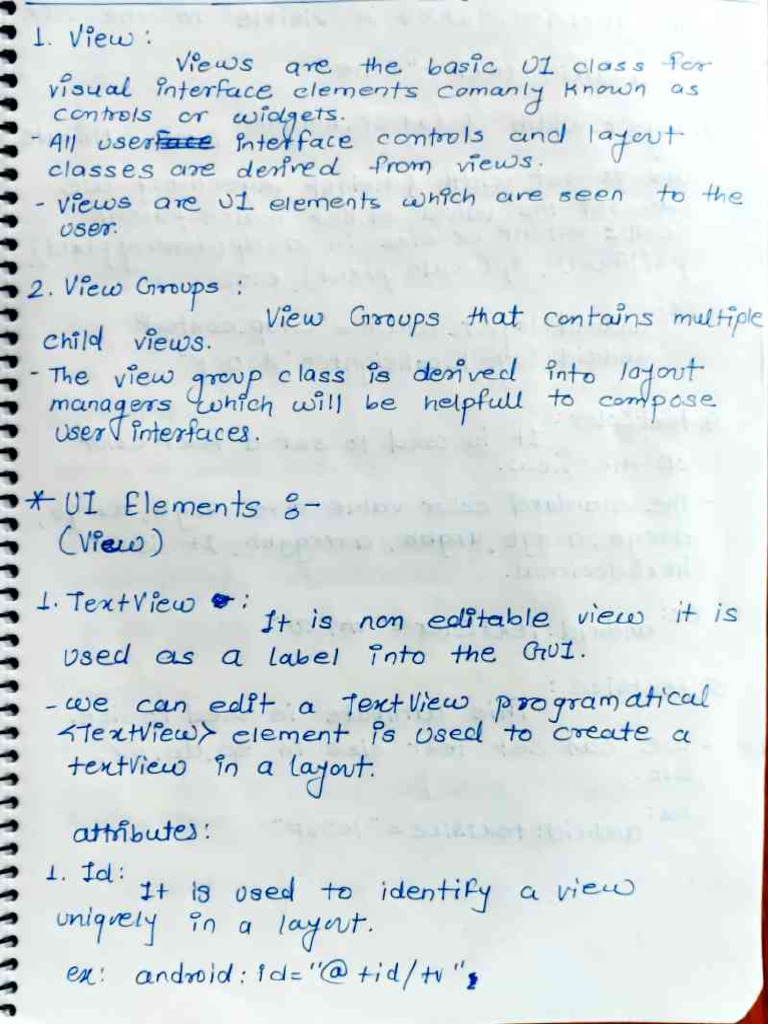 1. View :
Views are the basic UI class for
visual interface elements comanly known as
controls or widgets.
All user interface controls and layout
classes are derived from views.
- views are UI elements which are seen to the
user.
2. View Groups :
View Groups that contains multiple
child views.
- The view group class is derived into layout
managers which will be helpfull to compose
user interfaces.
* UI Elements :-
(View)
1. TextView :
It is non editable view it is
used as a label into the GUI.
- we can edit a TextView programatical
<TextView> element is used to create a
textView in a layout.
attributes:
1. Id:
It is used to identify a view
uniquely in a layout.
ex: android: id="@ +id/tv"